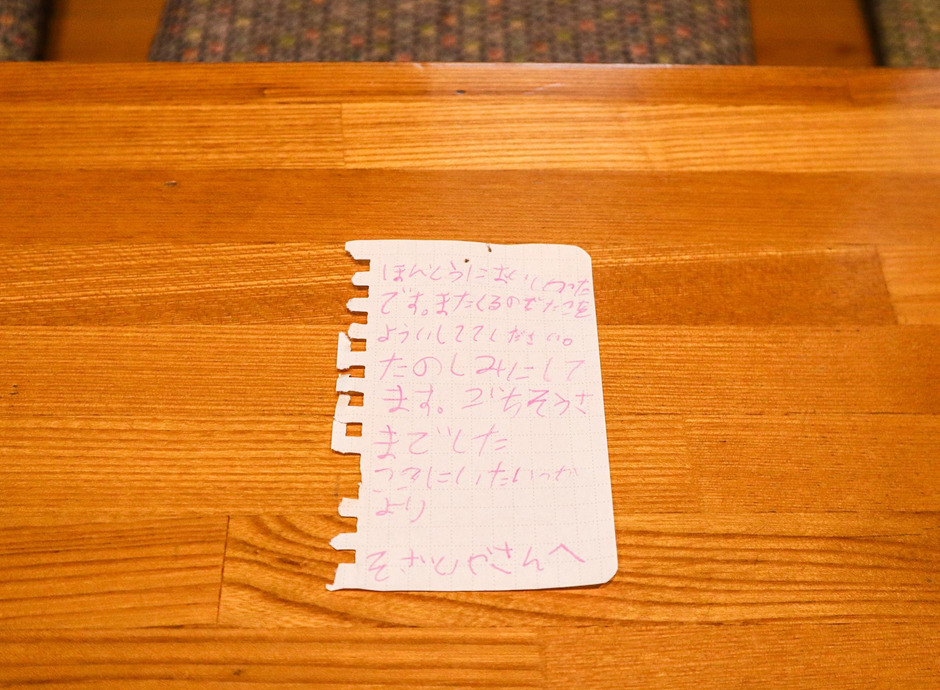 ほんとうにおいしかった
です。またくるのでたこを
よういしててください。
たのしみにして
ます。ごちそうさ
までした
ここにいた
より
さんへ